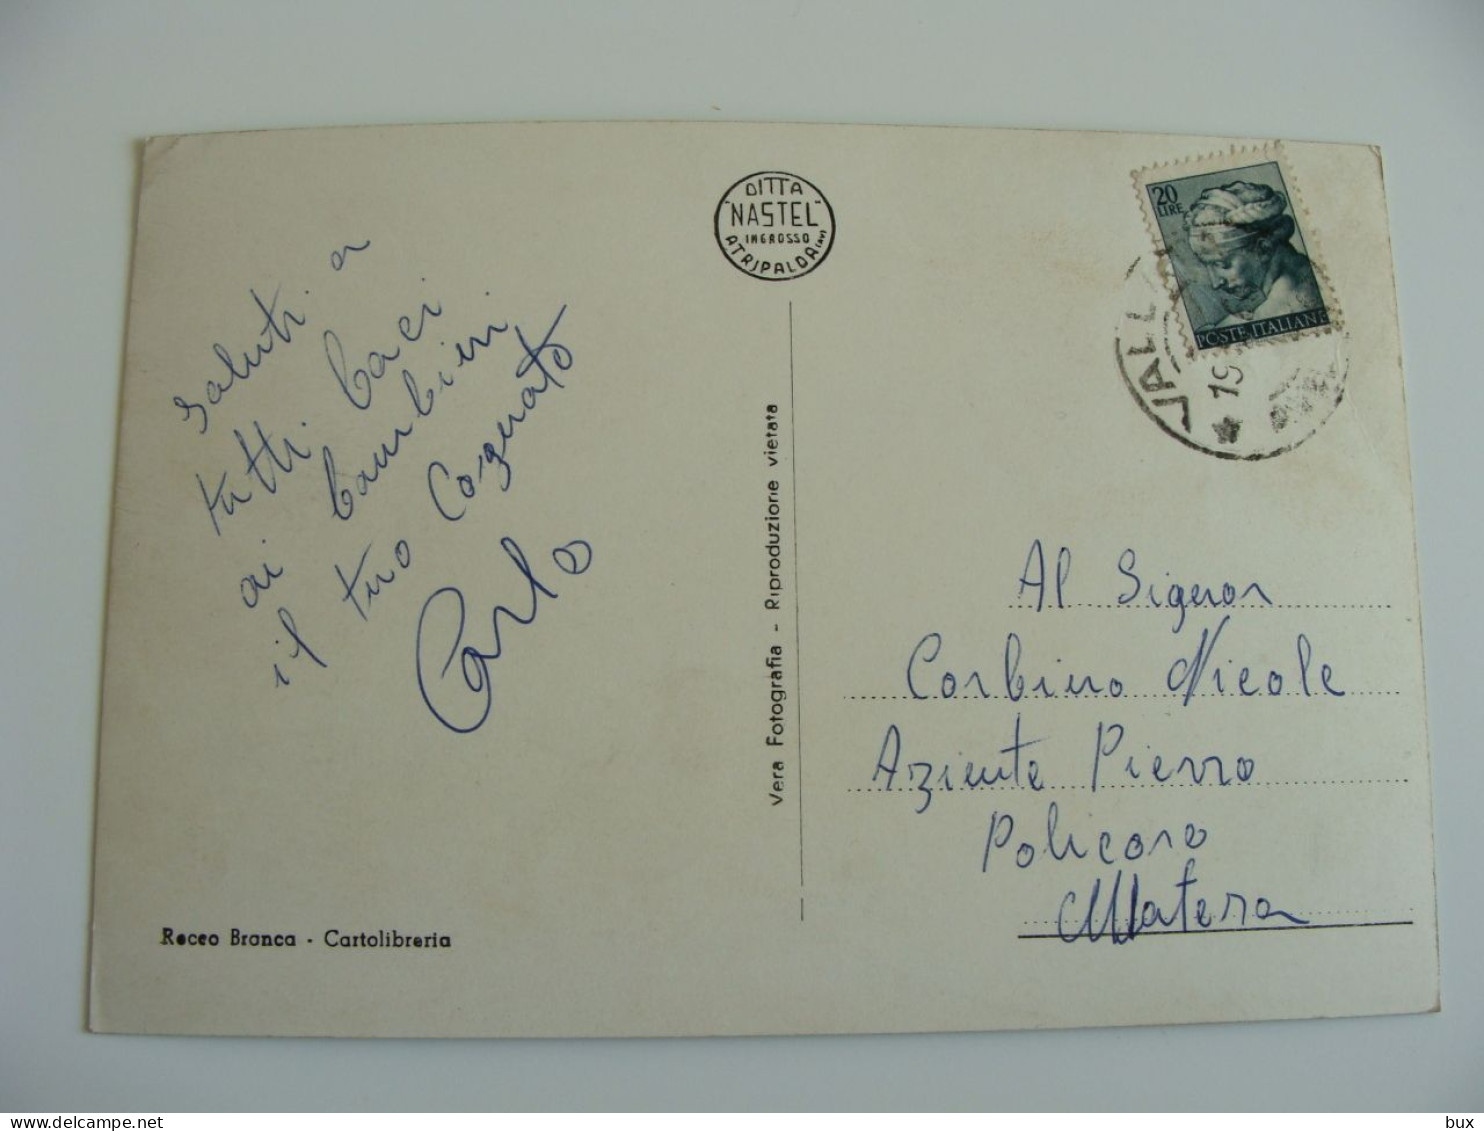 Saluti a
tutti baci
ai bambini
il tuo Cognato
Carlo
Rocco Branca - Cartolibreria
DITTA
"NASTEL"
INGROSSO
ATRIPALDA (AV)
Vera Fotografia - Riproduzione vietata
20
LIRE
POSTE ITALIANE
VALL
19
Al Signor
Corbino Nicole
Aziente Pierro
Policoro
Matera
bux